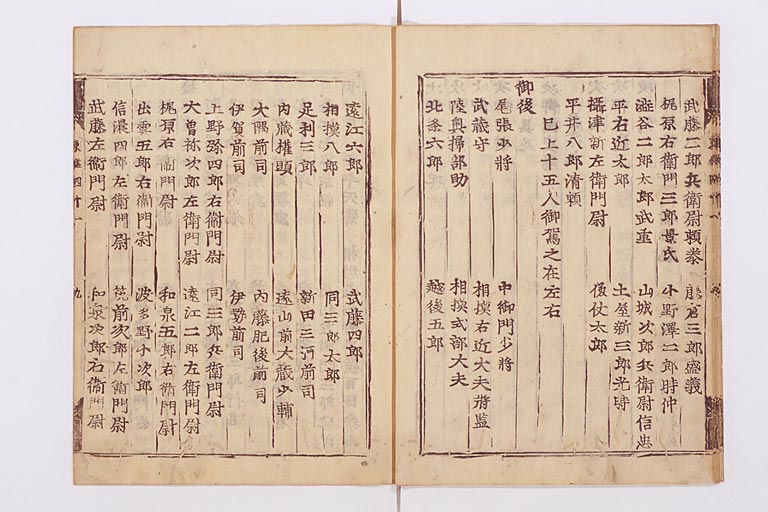 武藤二郎兵衛尉頼泰 鎌倉三郎盛義
梶原右衛門三郎景氏 小野澤二郎時仲
澁谷二郎太郎武重 山城次郎兵衛尉信忠
平右近太郎 土屋新三郎光時
攝津新左衛門尉 俣
平井八郎清頼
已上十五人御駕之在左右
御後
尾張少將 中御門少將
武藏守 相模右近大夫將監
陸奥掃部助 相模式部大夫
北条六郎 越後五郎
遠江六郎 武藤四郎
相模八郎 同三郎太郎
足利三郎 新田三河前司
内藏權頭 遠山前大藏少輔
大隅前司 内藤肥後前司
伊賀前司 伊勢前司
上野弥四郎右衛門尉 同三郎兵衛尉
大曽祢次郎左衛門尉 遠江二郎左衛門尉
梶原右衛門尉 和泉五郎右衛門尉
出雲五郎右衛門尉 波多野小次郎
信濃四郎左衛門尉 筑前次郎左衛門尉
武藤左衛門尉 和泉次郎右衛門尉